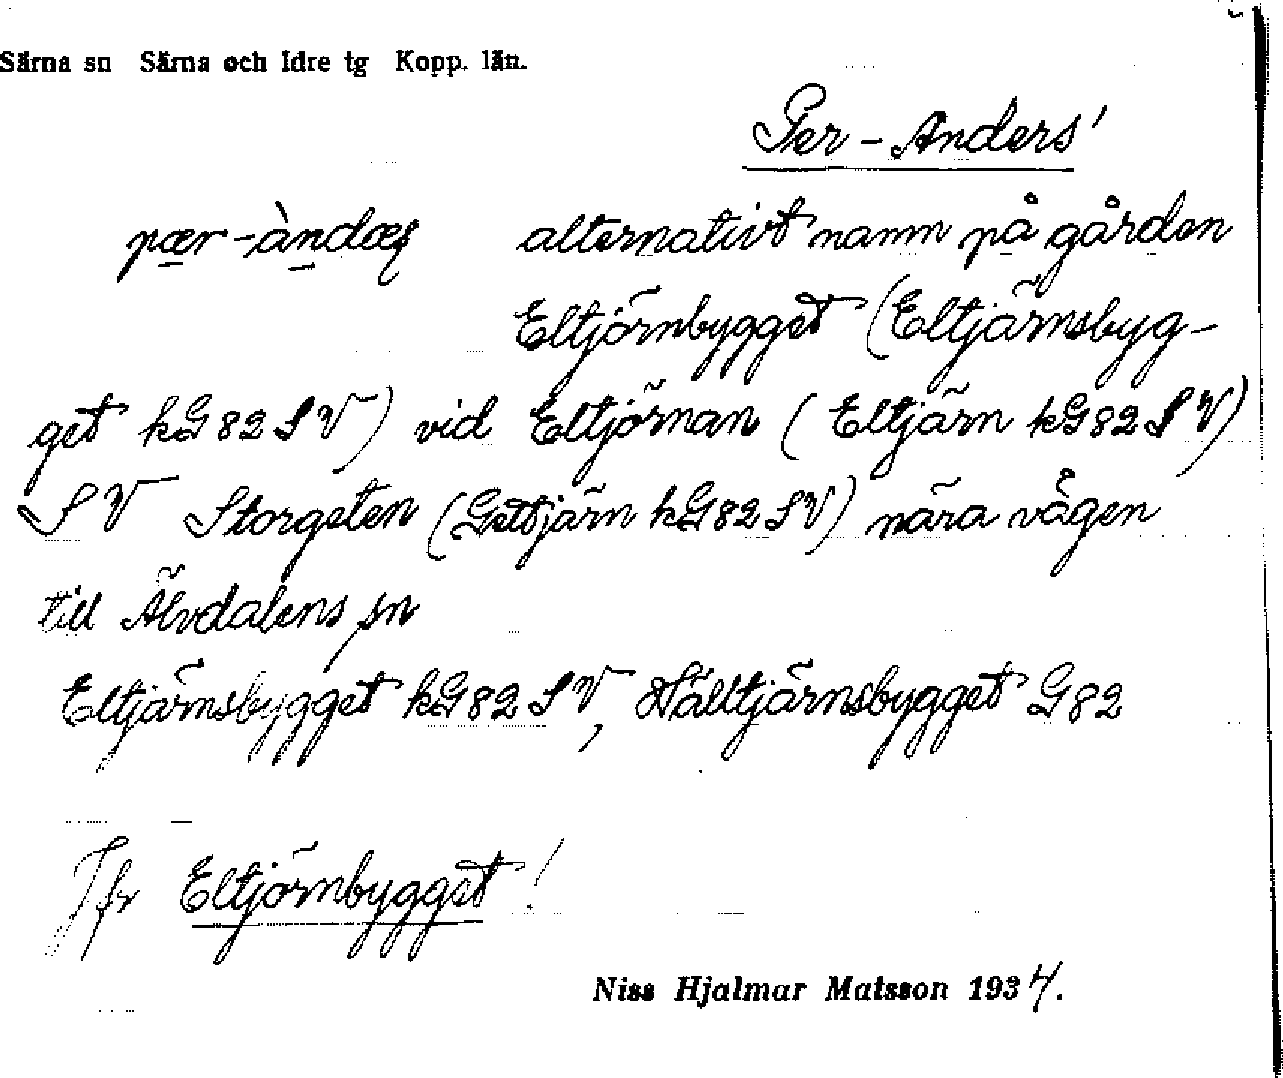 Särna sn Särna och Idre tg Kopp. län.
Per-Anders'
pær-àndæʂ alternativt namn på gården
Eltjörnbygget (Eltjärnsbyg-
get kG82SV) vid Eltjörnan (Eltjärn kG82SV)
SV Storgeten (Gettjärn kG82SV) nära vägen
till Älvdalens sn
Eltjärnsbygget kG82SV, Hälltjärnsbygget G82
Jfr Eltjörnbygget!
Niss Hjalmar Matsson 1934.